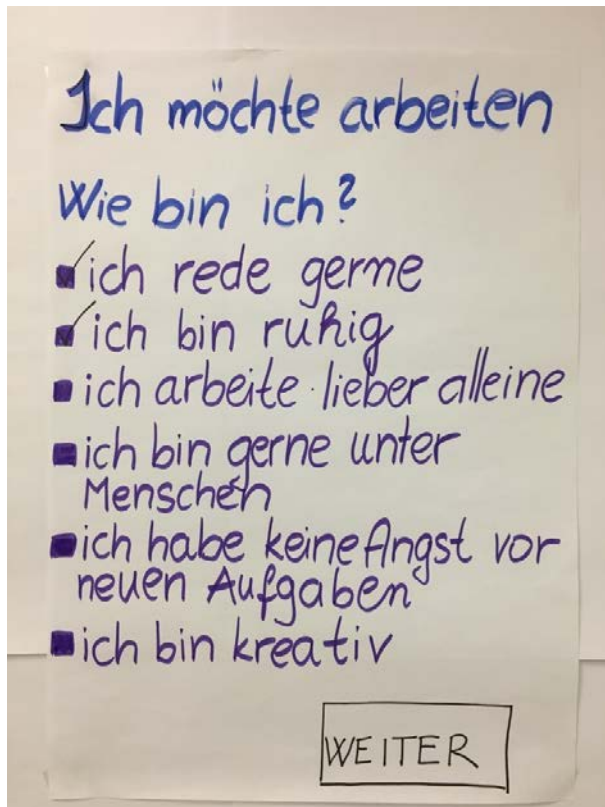 Ich möchte arbeiten
Wie bin ich?
ich rede gerne
ich bin ruhig
ich arbeite lieber alleine
ich bin gerne unter
Menschen
ich habe keine Angst vor
neuen Aufgaben
ich bin kreativ
WEITER